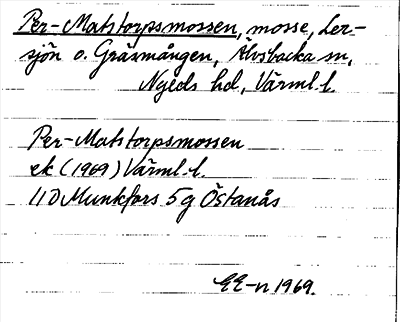 Per-Matstorpsmossen, mosse, Ler-
sjön o. Gräsmången, Älvsbacka sn,
Nyeds hd, Värml. l.
Per-Matstorpsmossen
ek (1969) Värml. l.
11D Munkfors 5g Östanås
EE-n 1969.